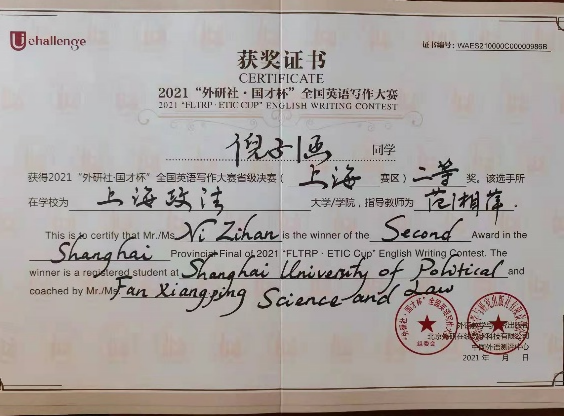 Uchallenge
证书编号：WAES210000C00000986B
获奖证书
CERTIFICATE
2021 “外研社·国才杯” 全国英语写作大赛
2021 “FLTRP · ETIC CUP” ENGLISH WRITING CONTEST
倪子涵 同学
获得2021 “外研社·国才杯” 全国英语写作大赛省级决赛（ 上海 赛区） 二等 奖，该选手所
在学校为 上海政法 大学/学院，指导教师为 范湘萍 .
This is to certify that Mr./Ms. Ni Zihan is the winner of the Second Award in the
Shanghai Provincial Final of 2021 “FLTRP · ETIC Cup” English Writing Contest. The
winner is a registered student at Shanghai University of Political and
coached by Mr./Ms. Fan Xiangping Science and Law
2021 年 月 日